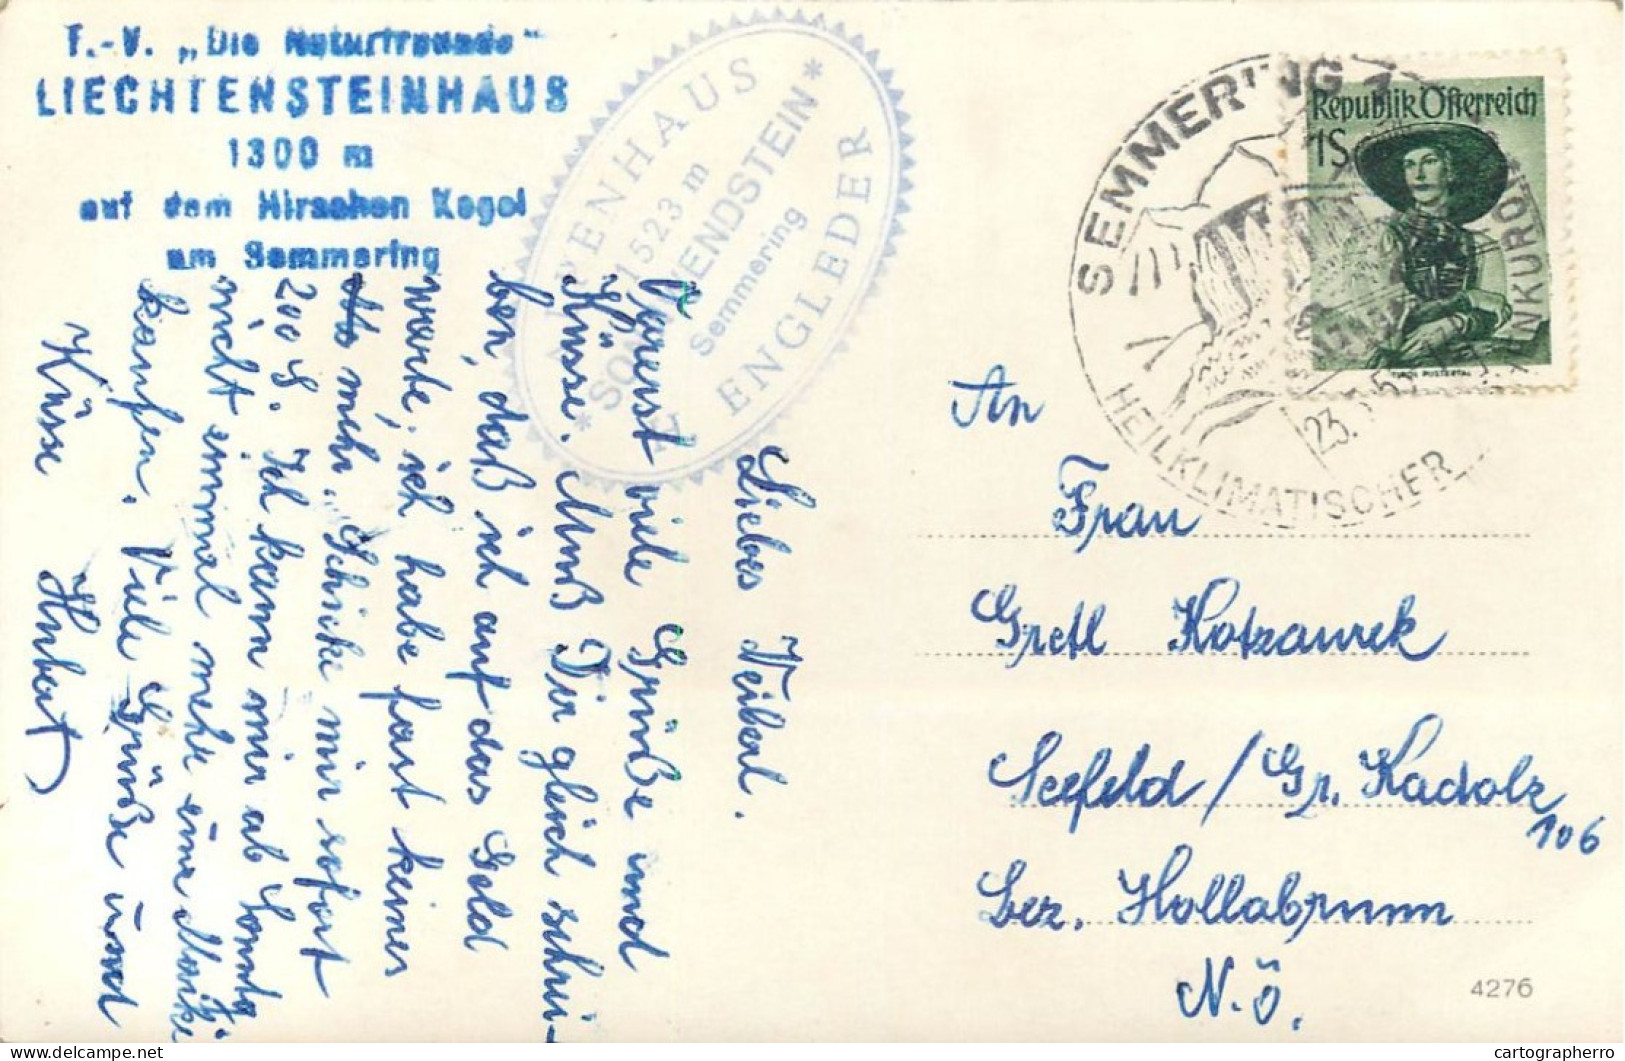 T.-V. „Die Naturfreunde"
LIECHTENSTEINHAUS
1300 m
auf dem Hirschen Kogel
am Semmering
ALPENHAUS
1523 m
* SONNWENDSTEIN *
Semmering
ENGLEDER
SEMMERING 1
HEILKLIMATISCHER
23.
Republik Österreich
1S
Liebes Weiberl.
Vorerst viele Grüße und
Küsse. Muß Dir gleich schrei-
ben, daß ich auf das Geld
warte, ich habe fast keines
mehr. Schicke mir sofort
200 S. Ich kann mir ab Sonntg
nicht einmal mehr eine Marke
kaufen. Viele Grüße und
Küsse Hubert
An
Frau
Gretl Kotzaurek
Seefeld / Gr. Kadolz
106
Bez. Hollabrunn
N.Ö.
4276
cartographerro
delcampe.net